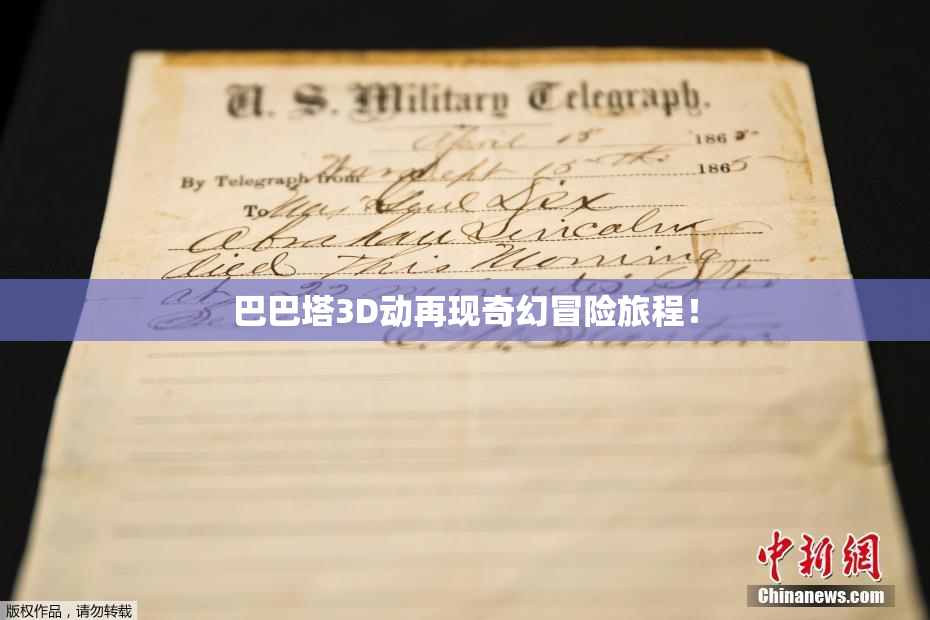 U. S. Military Telegraph.
April 15 1865
By Telegraph from War Dept 15th 1865
To Maj Genl Dix
Abraham Lincoln
died This Morning
at 22 minutes after
巴巴塔3D动再现奇幻冒险旅程！
E. M. Stanton
中新网
Chinanews.com
版权作品，请勿转载